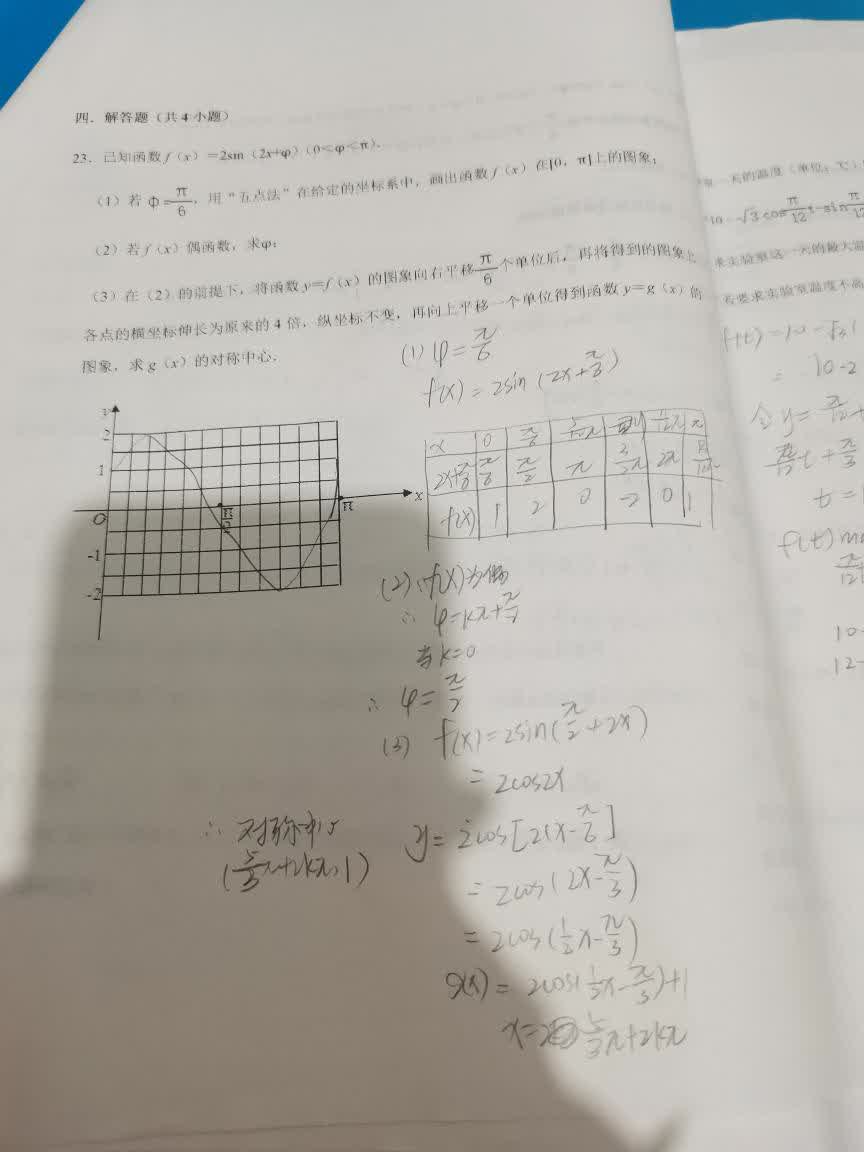 四．解答题（共 4 小题）
23．已知函数 f（x）=2sin（2x+φ）（0<φ<π）．
（1）若 Φ=π/6，用“五点法”在给定的坐标系中，画出函数 f（x）在[0，π]上的图象；
（2）若 f（x）偶函数，求φ；
（3）在（2）的前提下，将函数 y=f（x）的图象向右平移π/6个单位后，再将得到的图象上
各点的横坐标伸长为原来的 4 倍，纵坐标不变，再向上平移一个单位得到函数 y=g（x）的
图象，求 g（x）的对称中心．
(1) φ=π/6
f(x)=2sin(2x+π/6)
y
2
1
O
-1
-2
π/2
π
x
x 0 π/6 5/12π 11/12π π
2x+π/6 π/6 π/2 π 3/2π 2π
f(x) 1 2 0 -2 0 1
(2) ∵f(x)为偶
∴ φ=kπ+π/2
当k=0
∴ φ=π/2
(3) f(x)=2sin(π/2+2x)
=2cos2x
y=2cos[2(x-π/6]
=2cos(2x-π/3)
=2cos(1/2x-π/3)
g(x)=2cos(1/2x-π/3)+1
x=2 5/3π+2kπ
∴ 对称中心
(5/3π+2kπ,1)
一天的温度（单位：℃）
10-√3cosπ/12t-sinπ/12
求实验室这一天的最大温
若要求实验室温度不高
f(t)=10-
= 10-2
令y=
t=
f(t)
10-
12-